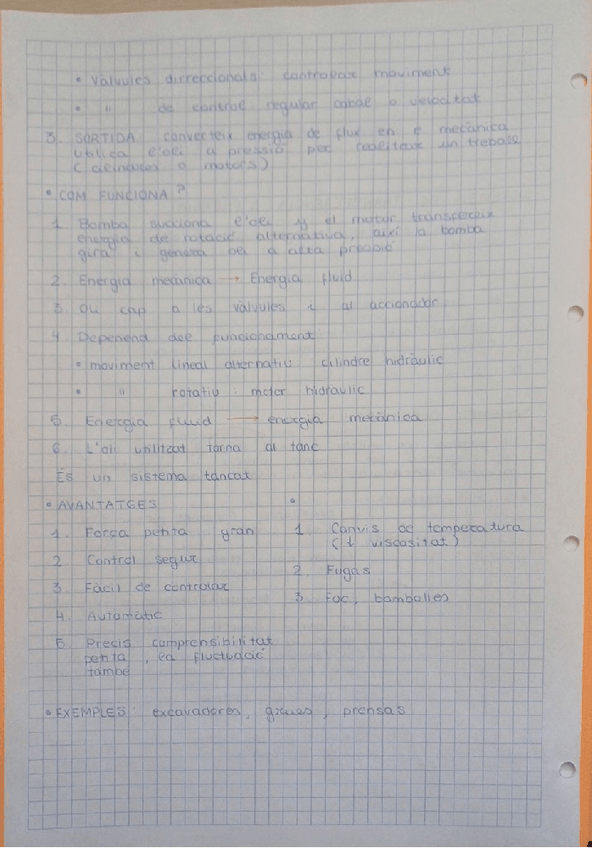 • Valvules dirreccionals: controlar moviment
• " de control regular cabal o velocitat
3. SORTIDA: converteix energia de flux en e mecànica
utilica l'oli a pressió per realitzar un treball
(cilindres o motors)
• COM FUNCIONA?
1. Bomba succiona l'oli y el motor transfereix
energia de rotació alternativa, així la bomba
gira i genera oli a alta pressió
2. Energia mecànica → Energia fluid
3. Oli cap a les vàlvules i al accionador
4. Depenend del funcionament
• moviment lineal alternatiu cilindre hidràulic
• " rotatiu: motor hidràulic
5. Energia fluid → energia mecànica
6. L'oli utilitzat torna al tanc
És un sistema tancat
• AVANTATGES
1. Força petita gran
2. Control segur
3. Fàcil de controlar
4. Automàtic
5. Precis comprensibilitat
petita, la fluctuació
també
•
1. Canvis de temperatura
(↓ viscositat)
2. Fugas
3. Foc, bamballes
• EXEMPLES: excavadores, grues, prensas